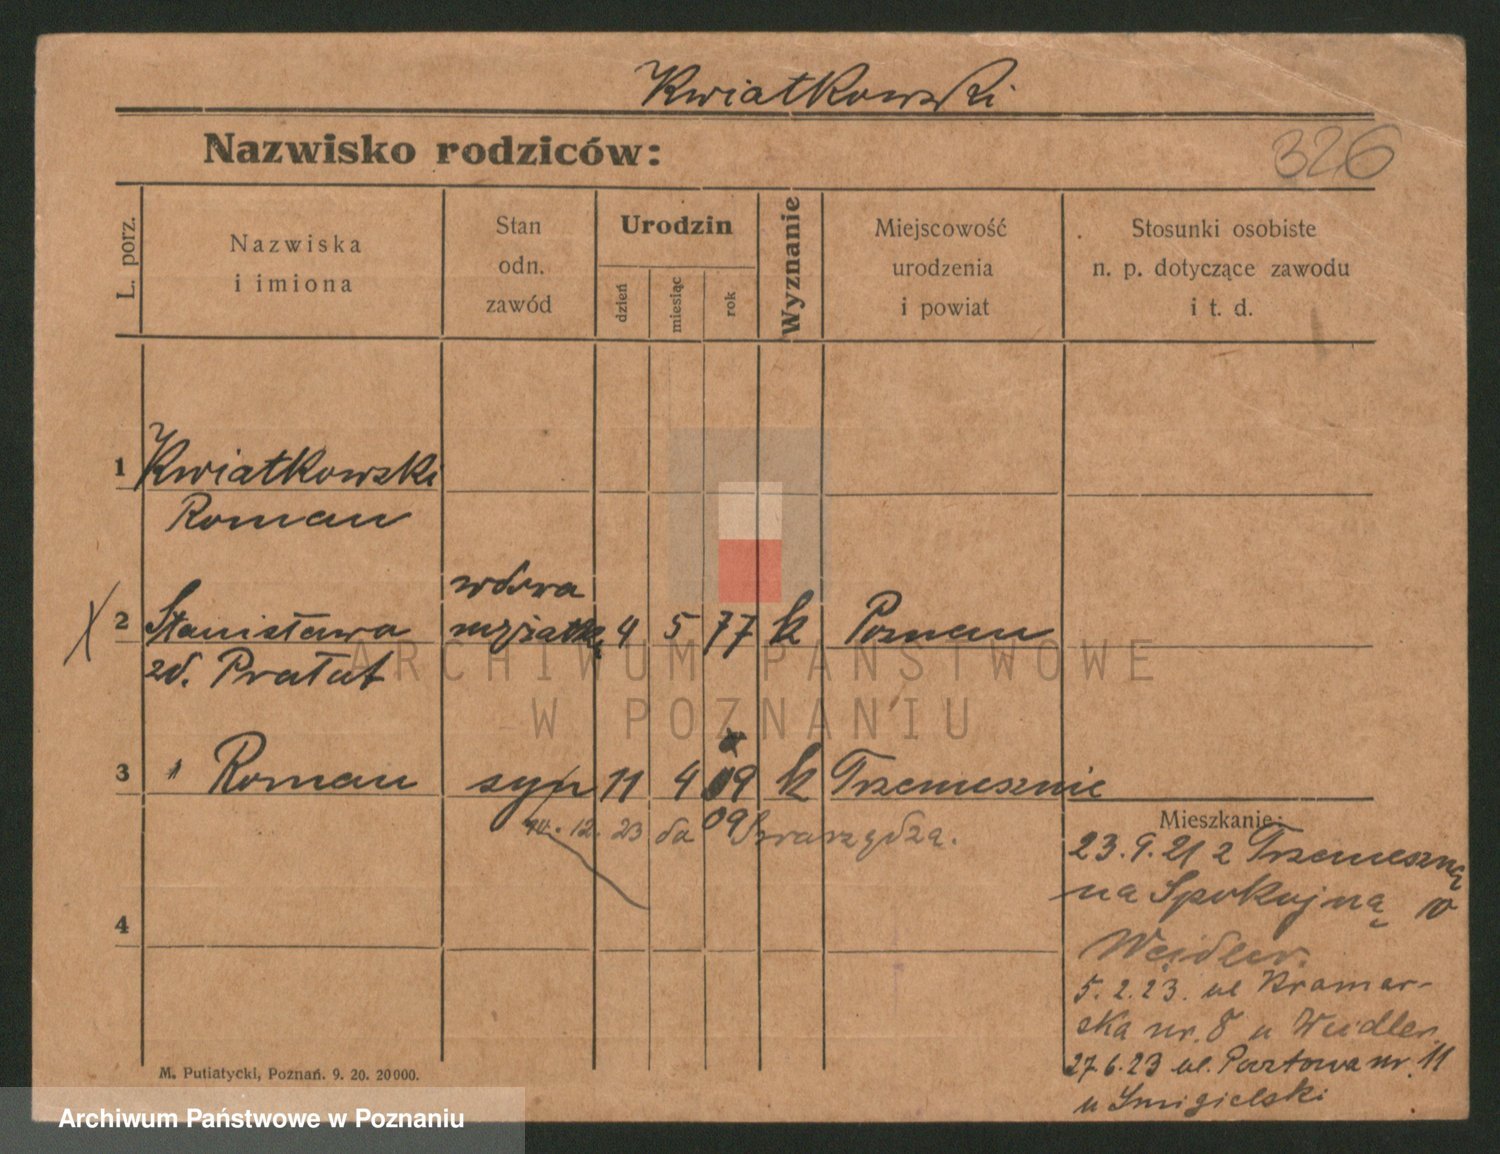 Kwiatkowski
Nazwisko rodziców:
326
L. porz.
Nazwiska
i imiona
Stan
odn.
zawód
Urodzin
dzień
miesiąc
rok
Wyznanie
Miejscowość
urodzenia
i powiat
Stosunki osobiste
n. p. dotyczące zawodu
i t. d.
1 Kwiatkowski
Roman
wdowa
2 Stanisława 4 5 77 k Poznań
zd. Prałat
3 Roman syn 11 4 09 k Trzemesznie
12. 23 do 09
Mieszkanie:
23.9.21 z Trzemeszna
na Spokojną 10
Weidler.
4
5.2.23. ul Kramar-
ska nr. 8 u Weidler.
27.6.23 ul. Pocztowa nr. 11
u Smigielski
M. Putiatycki, Poznań. 9. 20. 20000.
ARCHIWUM PAŃSTWOWE
W POZNANIU
Archiwum Państwowe w Poznaniu